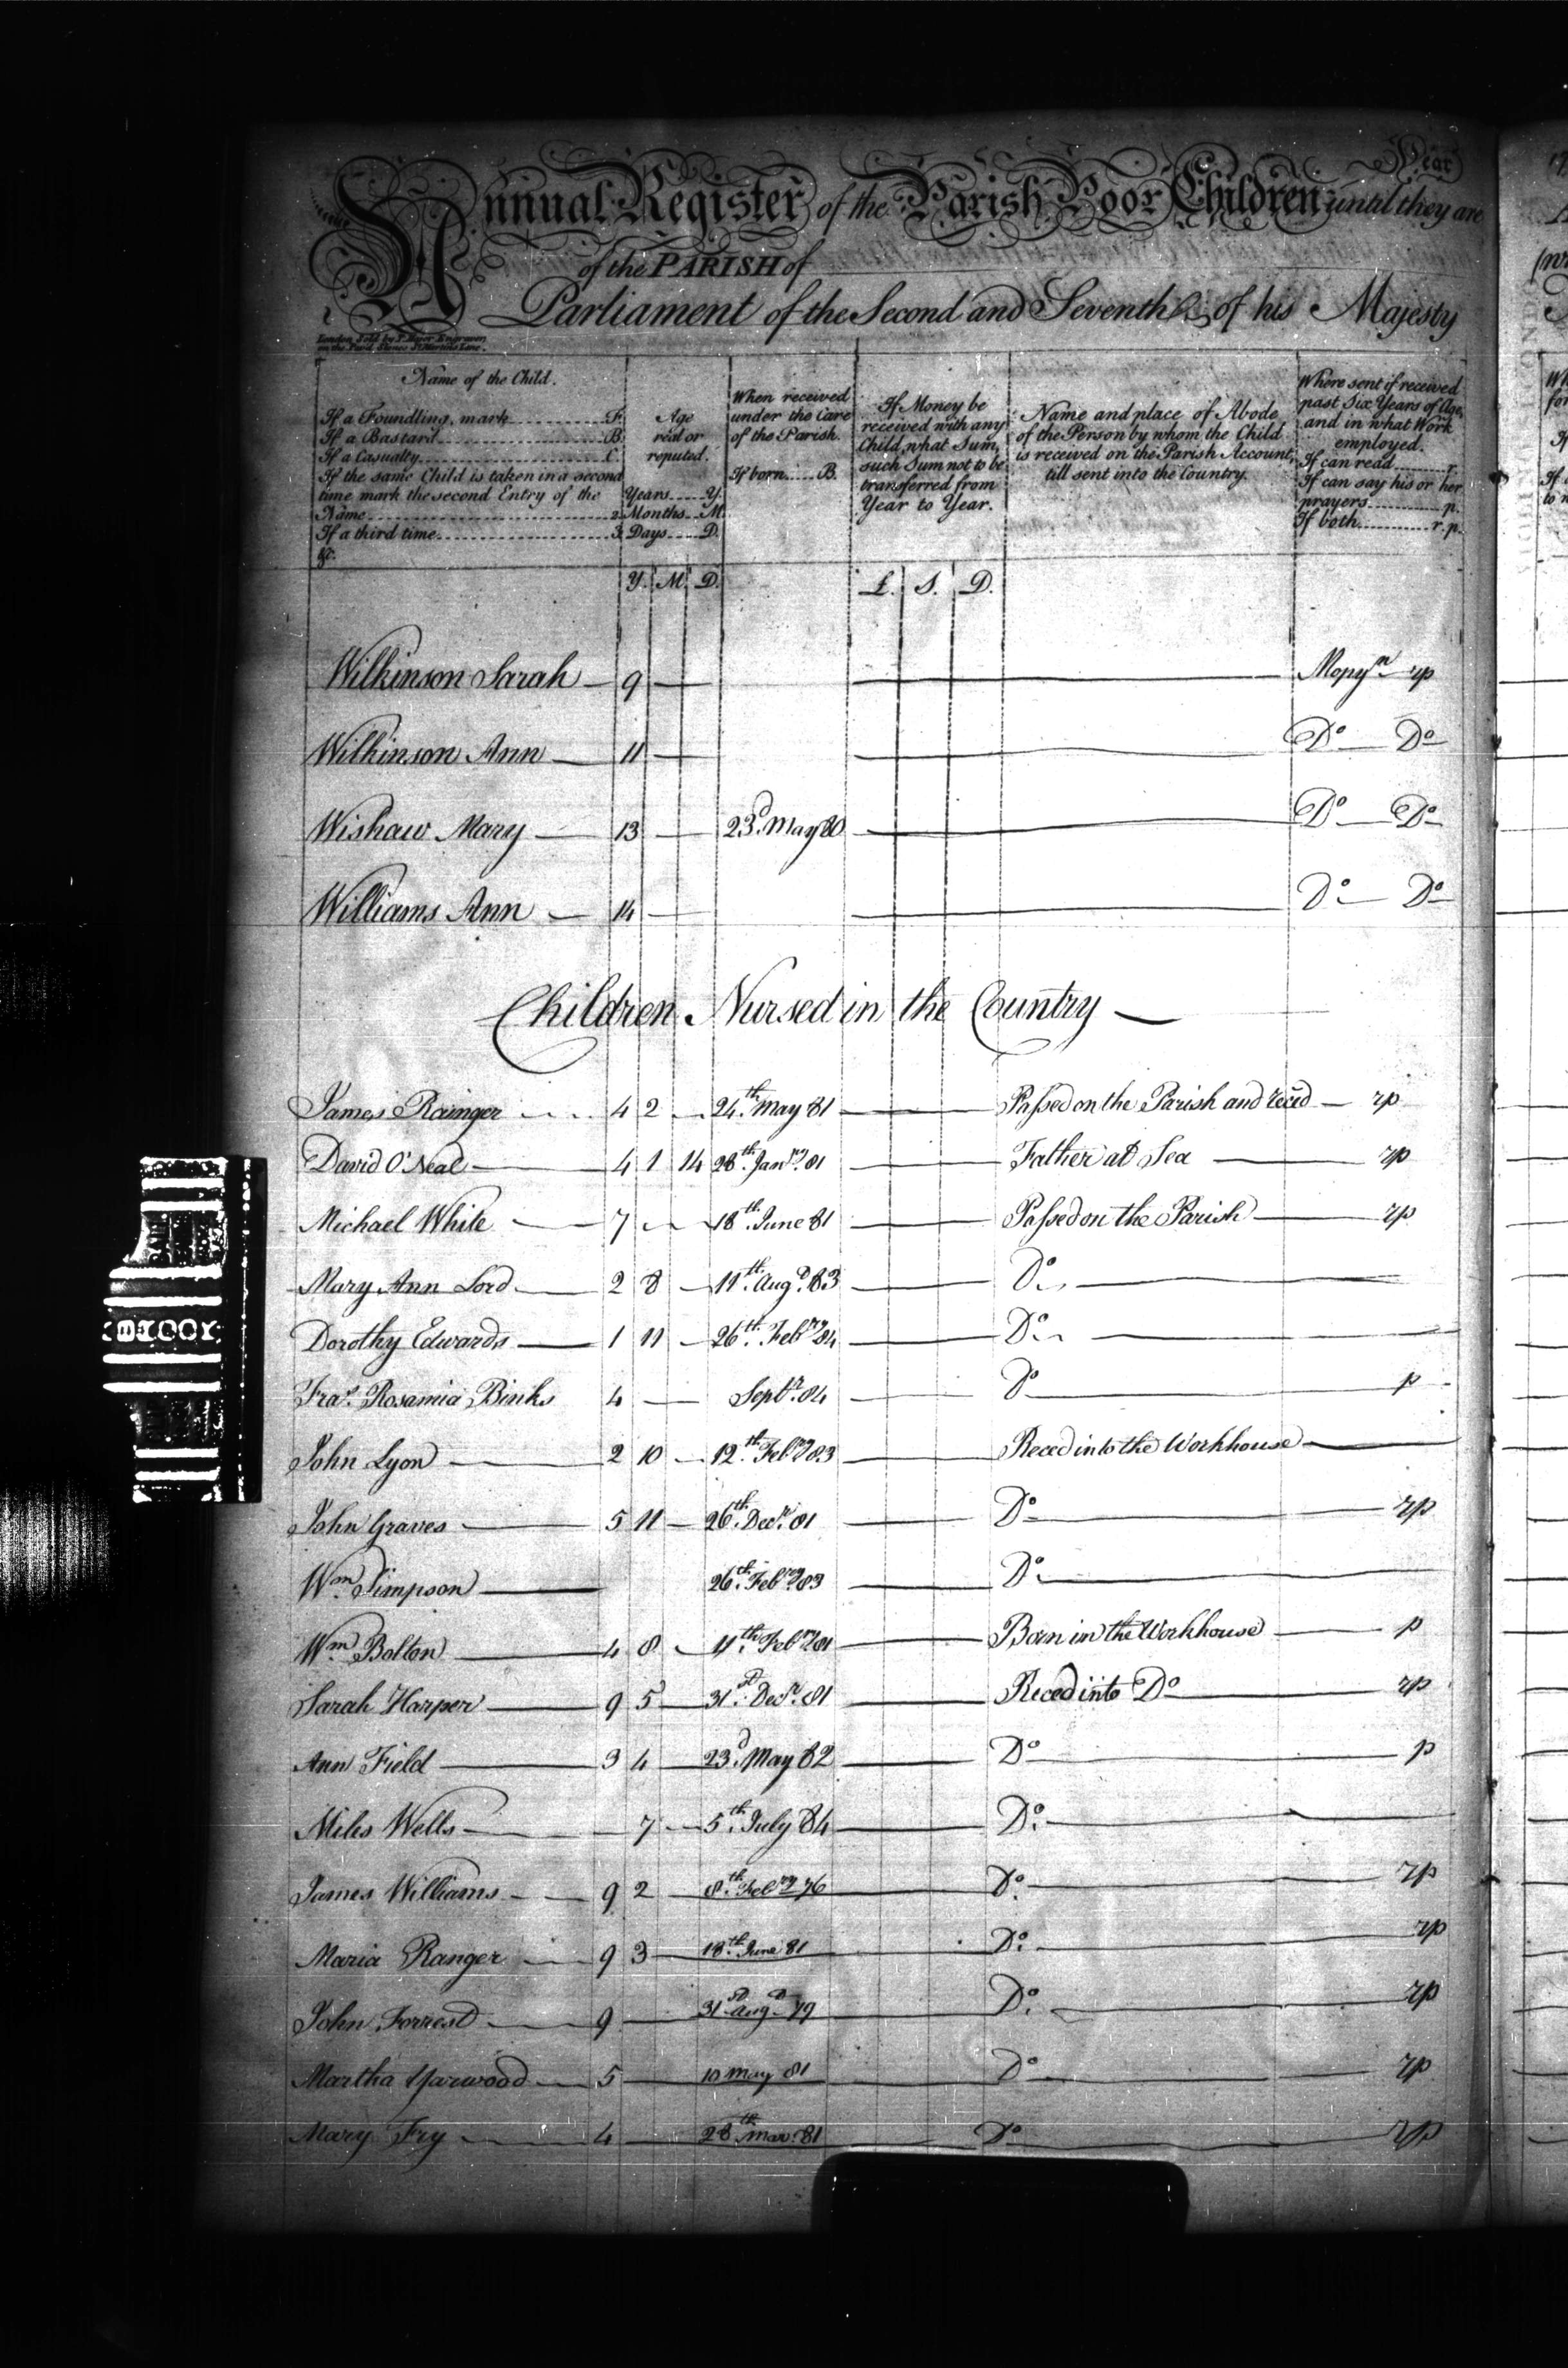 Annual Register of the Parish Poor Children until they are
Year
of the PARISH of
Parliament of the Second and Seventh of his Majesty
London Sold by
Name of the Child.
If a Foundling, mark F.
If a Bastard B.
If a Casualty C.
If the same Child is taken in a second
time mark the second Entry of the
Name 2
If a third time 3
&c.
Age
real or
reputed.
Years Y.
Months M.
Days D.
When received
under the Care
of the Parish.
If born B.
If Money be
received with any
Child, what Sum,
such Sum not to be
transferred from
Year to Year.
Name and place of Abode
of the Person by whom the Child
is received on the Parish Account,
till sent into the Country.
Where sent if received
past Six Years of Age,
and in what Work
employed.
If can read r.
If can say his or her
prayers p.
If both r.p.
Y. M. D. £. S. D.
Wilkinson Sarah — 9 — rp
Wilkinson Ann — 11 — Do — Do
Wishaw Mary — 13 — 23d. May 80 — Do — Do
Williams Ann — 14 — Do — Do
Children Nursed in the Country —
James Rainger 4 2 — 24th May 81 — Passed on the Parish and reced — rp
David O'Neal — 4 1 14 28th. Janry. 81 — Father at Sea — rp
Michael White — 7 — 18th. June 81 — Passed on the Parish — rp
Mary Ann Lord — 2 8 — 11th. Augt. 83 — Do. —
Dorothy Edwards — 1 11 — 26th. Febry 84 — Do. —
Fras. Rosamia Binks 4 — Septr. 84 — Do — p
John Lyon — 2 10 — 12th. Febry 83 — Reced into the Workhouse —
John Graves — 5 11 — 26th. Decr. 81 — Do — rp
Wm. Simpson — 26th. Febry 83 — Do. —
Wm. Bolton — 4 8 — 11th. Febry 81 — Born in the Workhouse — p
Sarah Harper — 9 5 — 31st. Decr. 81 — Reced into Do — rp
Ann Field — 3 4 — 23d. May 82 — Do — p
Miles Wells — 7 — 5th. July 84 — Do. —
James Williams — 9 2 — 8th. Febry 76 — Do. — rp
Maria Ranger — 9 3 — 18th. June 81 — Do. — rp
John Forrest — 9 — 31st Augt 79 — Do. — rp
Martha Yarwood — 5 — 10 May 81 — Do — rp
Mary Fry — 4 — 28th Mar. 81 — Do — rp